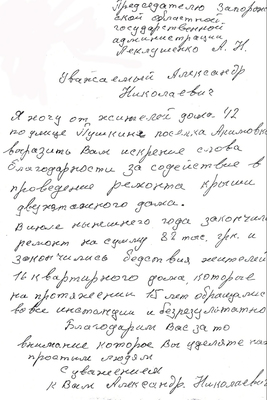 Председателю Запорож-
ской областной
государственной
администрации
Пеклушенко А. Н.
Уважаемый Александр
Николаевич
Я хочу от жителей дома 42
по улице Пушкина посёлка
выразить Вам искренние слова
благодарности за содействие в
проведение ремонта крыши
двухэтажного дома.
В июле нынешнего года закончили
ремонт на сумму 82 тыс. грн. и
закончились бедствия жителей
16 квартирного дома, которые
на протяжении 15 лет обращались
во все инстанции и безрезультатно
Благодарим Вас за то
внимание которое Вы уделяете нам
простым людям
С уважением
к Вам Александр Николаевич